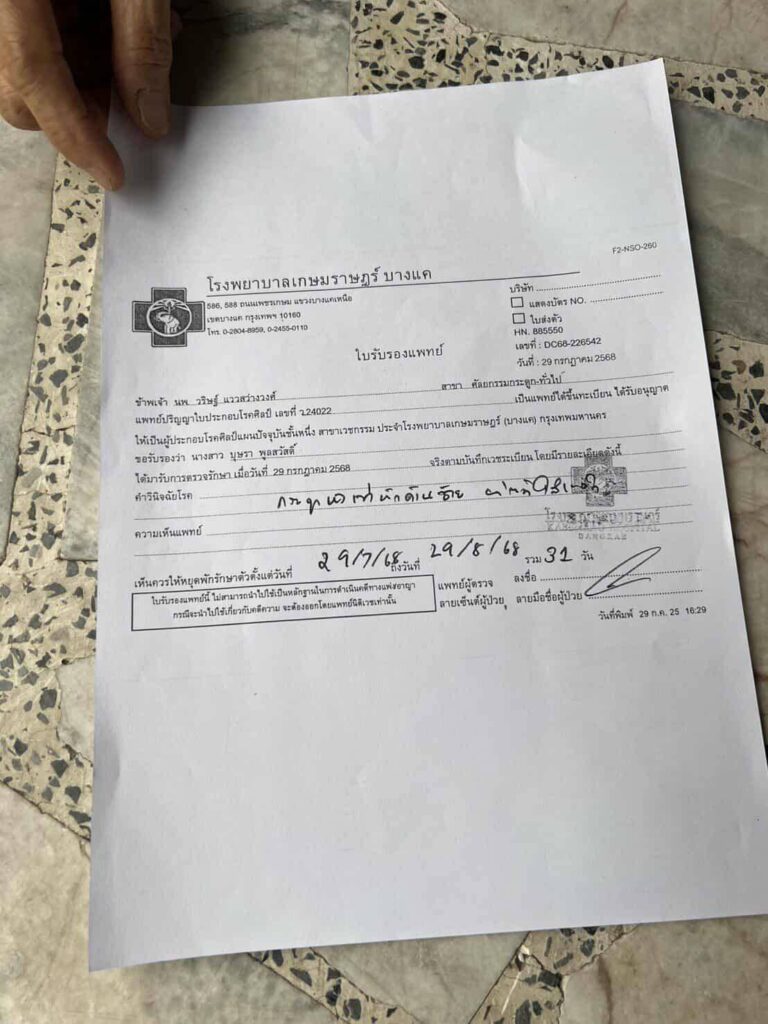 F2-NSO-260
โรงพยาบาลเกษมราษฎร์ บางแค
586, 588 ถนนเพชรเกษม แขวงบางแคเหนือ
เขตบางแค กรุงเทพฯ 10160
โทร. 0-2804-8959, 0-2455-0110
บริษัท
แสดงบัตร NO.
ใบส่งตัว
HN. 885550
เลขที่ : DC68-226542
วันที่ : 29 กรกฎาคม 2568
ใบรับรองแพทย์
ข้าพเจ้า นพ. วริษฐ์ แววสว่างวงศ์ สาขา ศัลยกรรมกระดูก-ทั่วไป
แพทย์ปริญญาใบประกอบโรคศิลป์ เลขที่ ว.24022 เป็นแพทย์ได้ขึ้นทะเบียน ได้รับอนุญาต
ให้เป็นผู้ประกอบโรคศิลป์แผนปัจจุบันชั้นหนึ่ง สาขาเวชกรรม ประจำโรงพยาบาลเกษมราษฎร์ (บางแค) กรุงเทพมหานคร
ขอรับรองว่า นางสาว บุษรา พูลสวัสดิ์
ได้มารับการตรวจรักษา เมื่อวันที่ 29 กรกฎาคม 2568 จริงตามบันทึกเวชระเบียน โดยมีรายละเอียดดังนี้
คำวินิจฉัยโรค กระดูก หักด้านซ้าย
โรงพยาบาลเกษมราษฎร์
KASEMRAD HOSPITAL
BANGKAE
ความเห็นแพทย์
เห็นควรให้หยุดพักรักษาตัวตั้งแต่วันที่ 29/7/68 ถึงวันที่ 29/8/68 รวม 31 วัน
ใบรับรองแพทย์นี้ ไม่สามารถนำไปใช้เป็นหลักฐานในการดำเนินคดีทางแพ่งอาญา
กรณีจะนำไปใช้เกี่ยวกับคดีความ จะต้องออกโดยแพทย์นิติเวชเท่านั้น
แพทย์ผู้ตรวจ ลงชื่อ
ลายเซ็นต์ผู้ป่วย ลายมือชื่อผู้ป่วย
วันที่พิมพ์ 29 ก.ค. 25 16:29